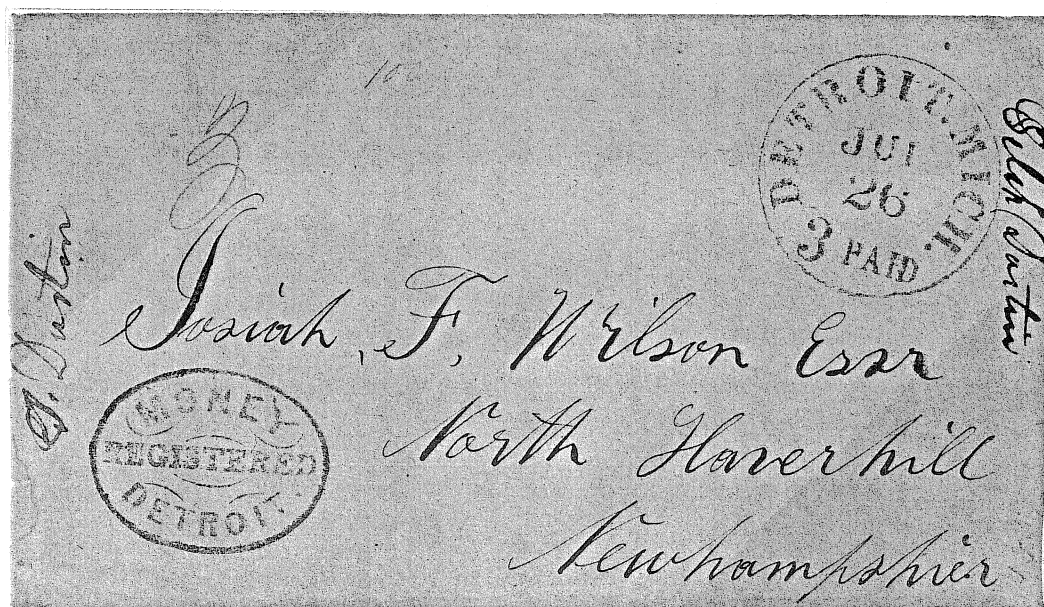 DETROIT. MICH.
JUL
26
3 PAID
Josiah, F. Wilson Essr
North Haverhill
Newhampshier
MONEY
REGISTERED
DETROIT.